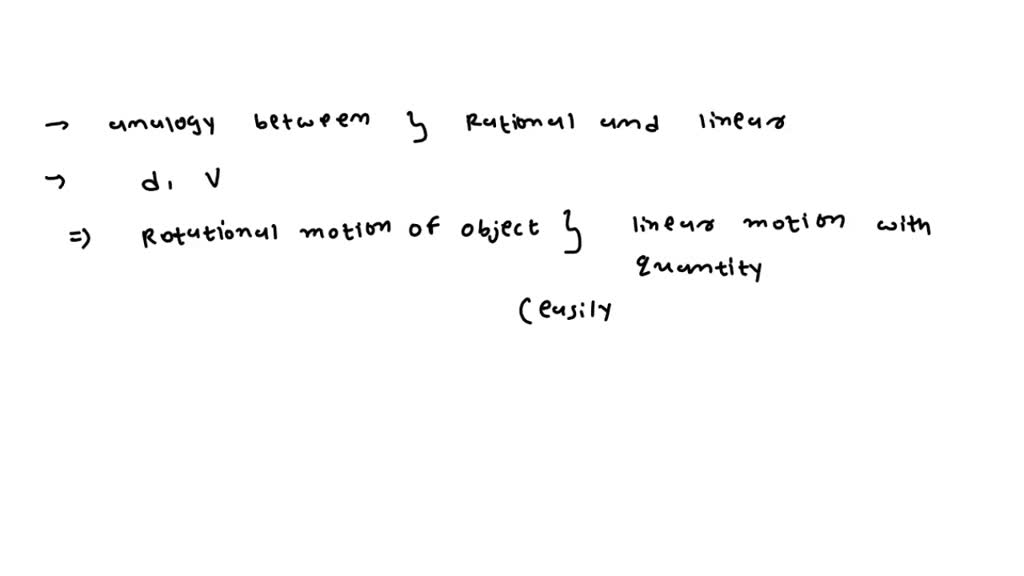 → analogy between } Rational and linear
→ d, V
⇒ Rotational motion of object } linear motion with
quantity
(easily